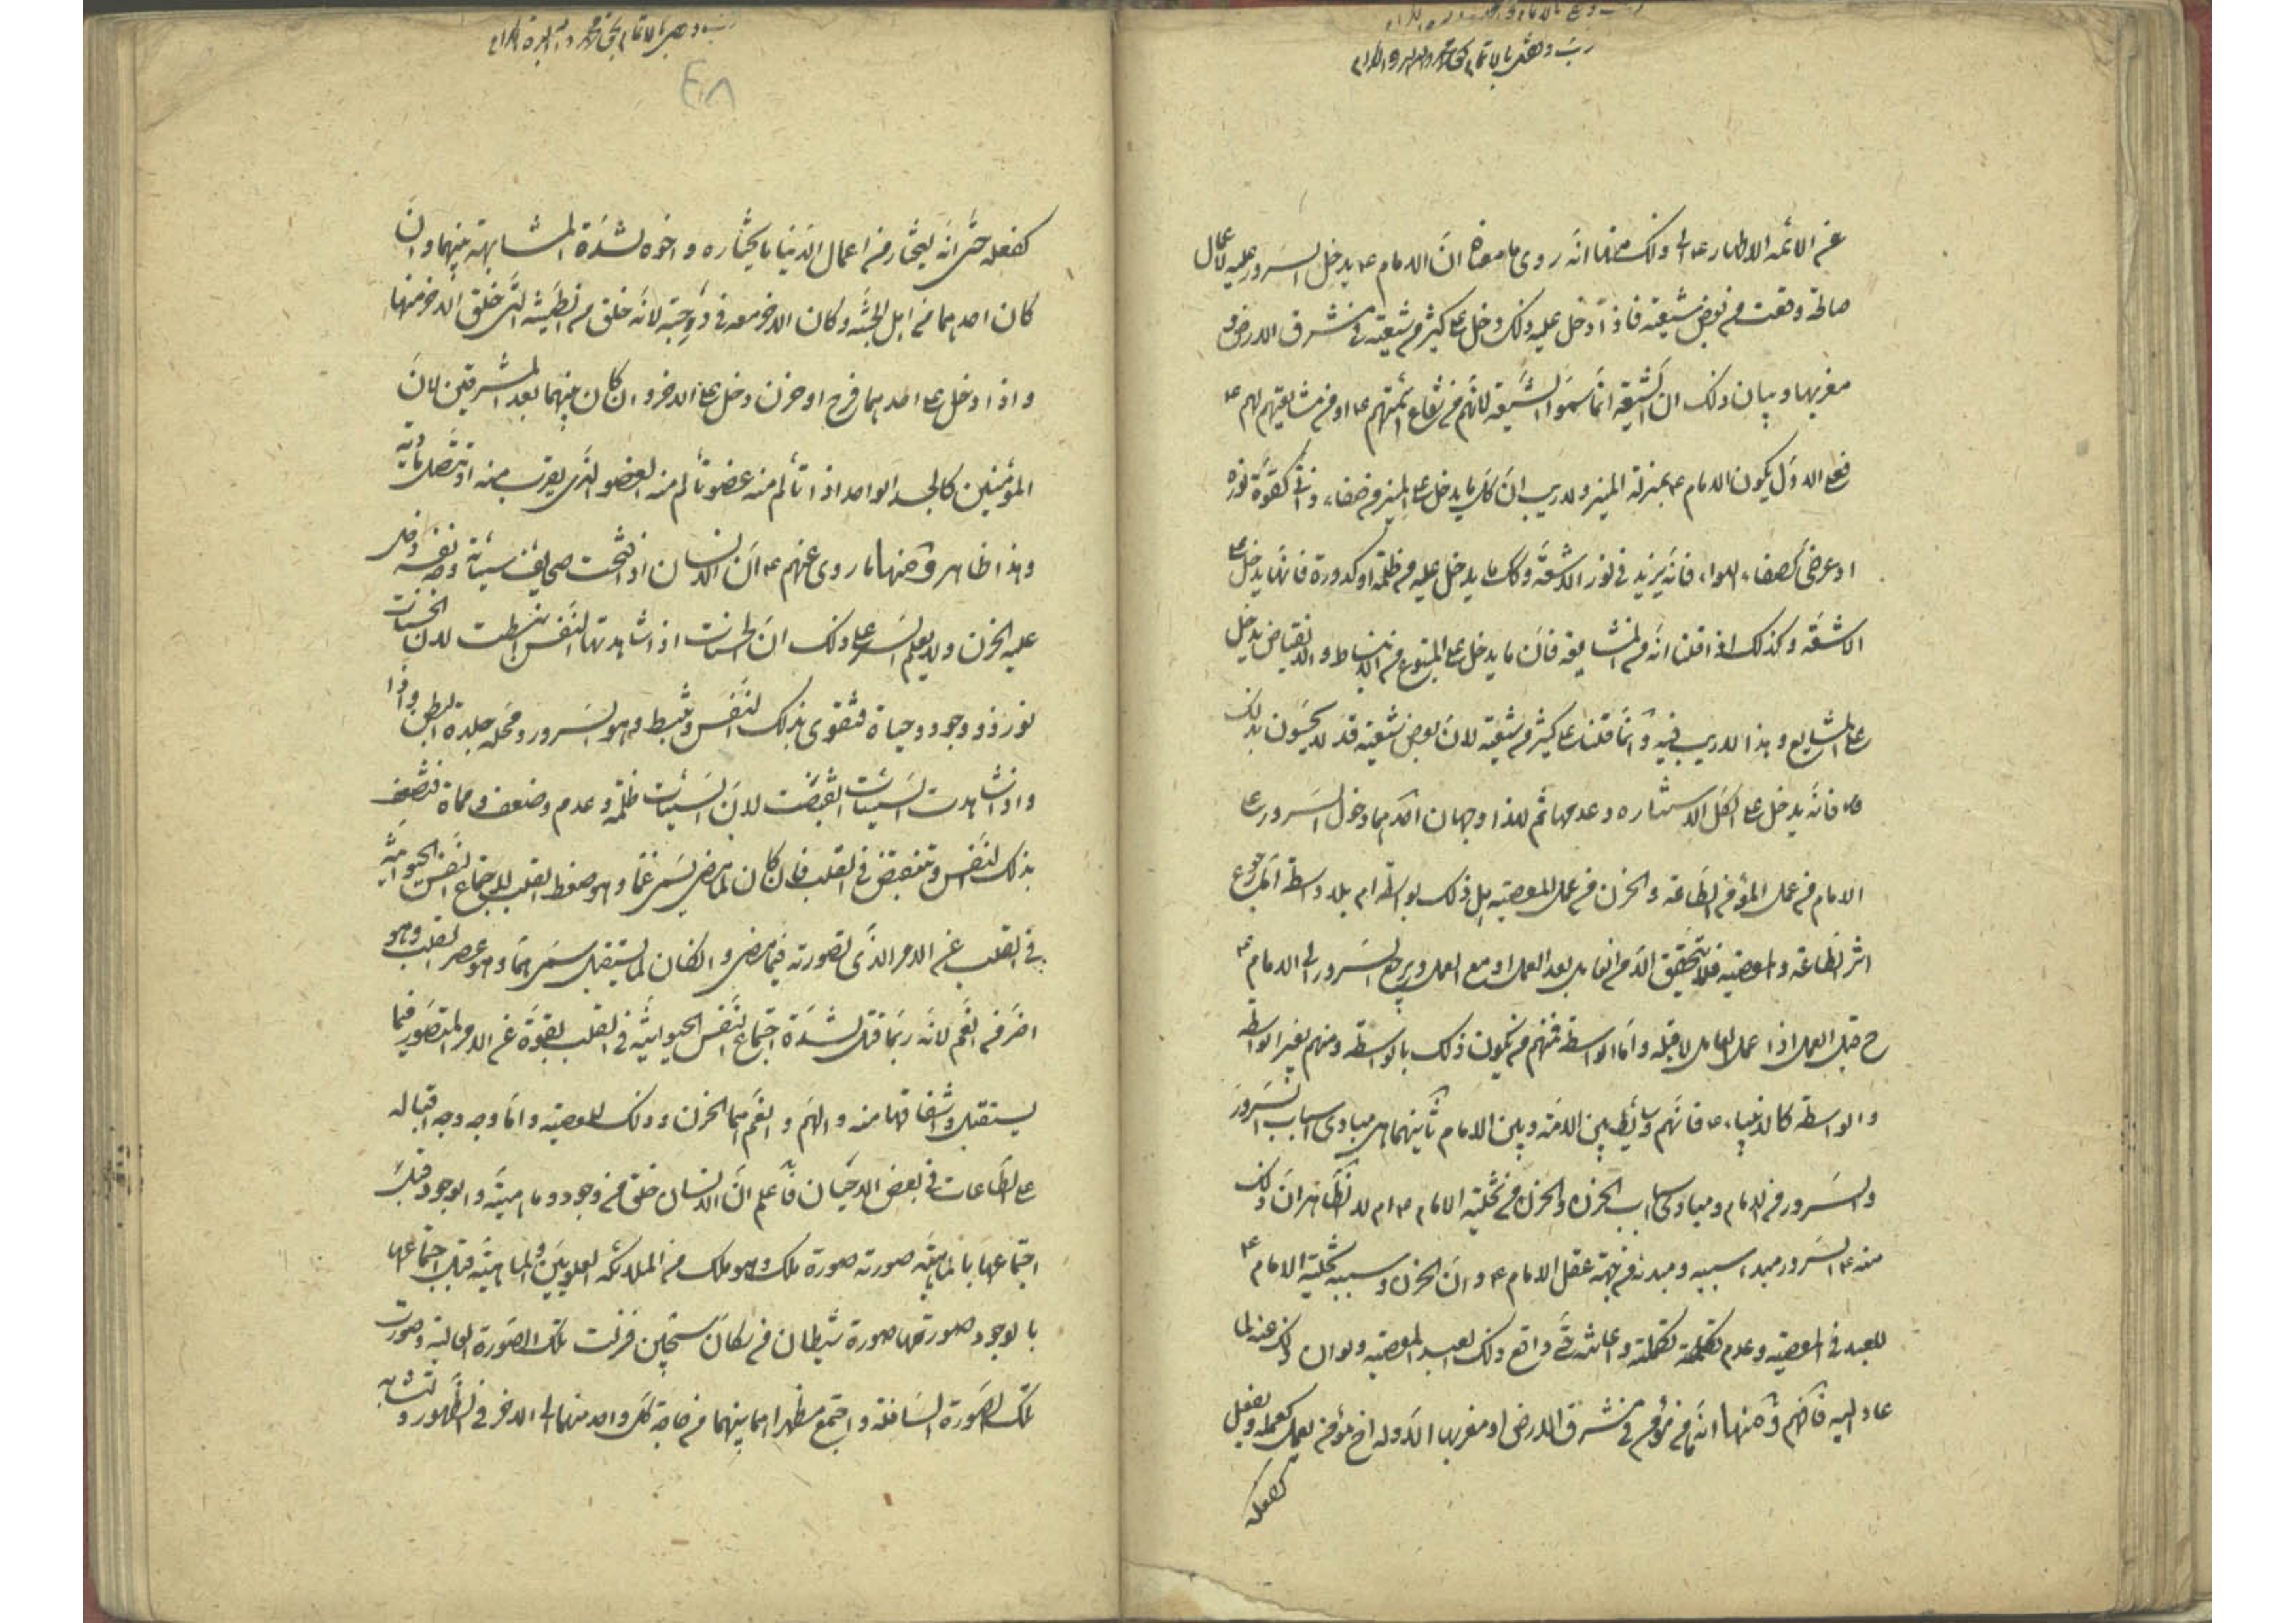 عن الائمه الاطهار ع و لك منها انه روى ما معناه ان الامام ع يدخل السرور عليه لاعمال
صالحة وقعت من بعض شيعته فاذا دخل عليه ذلك دخل على كثير من شيعته في مشرق الارض و
مغربها و بيان ذلك ان الشيعة انما سموا الشيعة لانهم من شعاع ائمتهم ع او من مشايعتهم لهم ع
فعلى الاول يكون الامام ع بمنزلة المنير و لا ريب ان كل ما يدخل على المنير من صفاء ذاتي كقوة نوره
او عرضي كصفاء الهواء فانه يزيد في نور الاشعة و كل ما يدخل عليه من ظلمة او كدورة فانها يدخل على
الاشعة و كذلك اذا قلنا انه من المشايعة فان ما يدخل على المتبوع من الانبساط و الانقباض يدخل
على المشايع و هذا لا ريب فيه و انما قلنا على كثير من شيعته لان بعض شيعته قد لا يحسون بذلك
فانه يدخل على الكل الاستناره و عدمها ثم لهذا وجهان احدهما دخول السرور على
الامام من عمل المؤمن الطاعة و الحزن من عمل المعصية هل ذلك بواسطة ام بلا واسطة
اثر الطاعة و المعصية فلا يتحقق الا من العامل بعد العمل او مع العمل و يرجع السرور الى الامام ع
ح قبل العمل اذا عمل العامل لا قبله و اما الواسطة فمنهم من يكون ذلك بالواسطة و منهم بغير الواسطة
و الواسطة كالانبياء ع فانهم وسائط بين الامة و بين الامام ثانيهما هل مبادي اسباب السرور
و السرور من الامام و مبادي اسباب الحزن و الحزن من تخلية الامام ع ام لا الظاهر ان ذلك
منه ع السرور مبدء سببه و مبدئه من جهة عقل الامام ع و ان الحزن و سببه تخلية الامام ع
للعبد في المعصية و عدم تكملته و اعانته حتى واقع ذلك العبد المعصية و لو ان ذلك عنه لما
عاد اليه فافهم و منها انه ما من مؤمن في مشرق الارض او مغربها الا و له اخ مؤمن يعمل كعمله و يفعل
كفعله
كفعله حتى انه ليختار من اعمال الدنيا ما يختاره و اخوه لشدة المشابهة بينهما و ان
كان احدهما من اهل الجنة و كان الاخر معه في درجته لانه خلق من الطينة التي خلق الاخر منها
و اذا دخل على احدهما فرح او حزن دخل على الاخر و ان كان بينهما بعد المشرقين لان
المؤمنين كالجسد الواحد اذا تألم منه عضو تألم منه العضو الذي يقرب منه او تتصل مادته به
و هذا ظاهر و منها ما روى عنهم ع ان الانسان اذا فتحت صحايف سيئاته وجد نفسه دخل
عليه الحزن و لا يعلم السر على ذلك ان الحسنات اذا شاهدتها النفس انبسطت لان الحسنات
نور و وجود و حياة فتقوى بذلك النفس و تنبسط و هو السرور و محله جلدة البطن و اذا
و اذا شاهدت السيئات انقبضت لان السيئات ظلمة و عدم و ضعف و مماة فتضعف
بذلك النفس و تنقبض في القلب فان كان لما مضى يسمى غما و هو ضغط القلب لاجتماع النفس الحيوانية
في القلب عن الامر الذي تصورته فيما مضى و ان كان لما يستقبل سمى هما و هو عصر القلب و هو
اضر من الغم لانه ربما قتل لشدة اجتماع النفس الحيوانية في القلب بقوة عن الامر المتصور فيما
يستقبل و اشفاقها منه و الهم و الغم هما الحزن و ذلك للمعصية و اما وجه وجه اقباله
على الطاعات في بعض الاحيان فاعلم ان الانسان خلق من وجود و ماهية و الوجود قبل
اجتماعها بالماهية صورته صورة ملك و هو ملك من الملائكه العلويين و الماهية قبل اجتماعها
بالوجود صورتها صورة شيطان من سكان سجين فنزلت تلك الصورة العالية و صورت
تلك الصورة السافلة و اجتمع مظهراهما بينهما من حاجة كل واحد منهما الى الاخر في الظهور و لتشابه